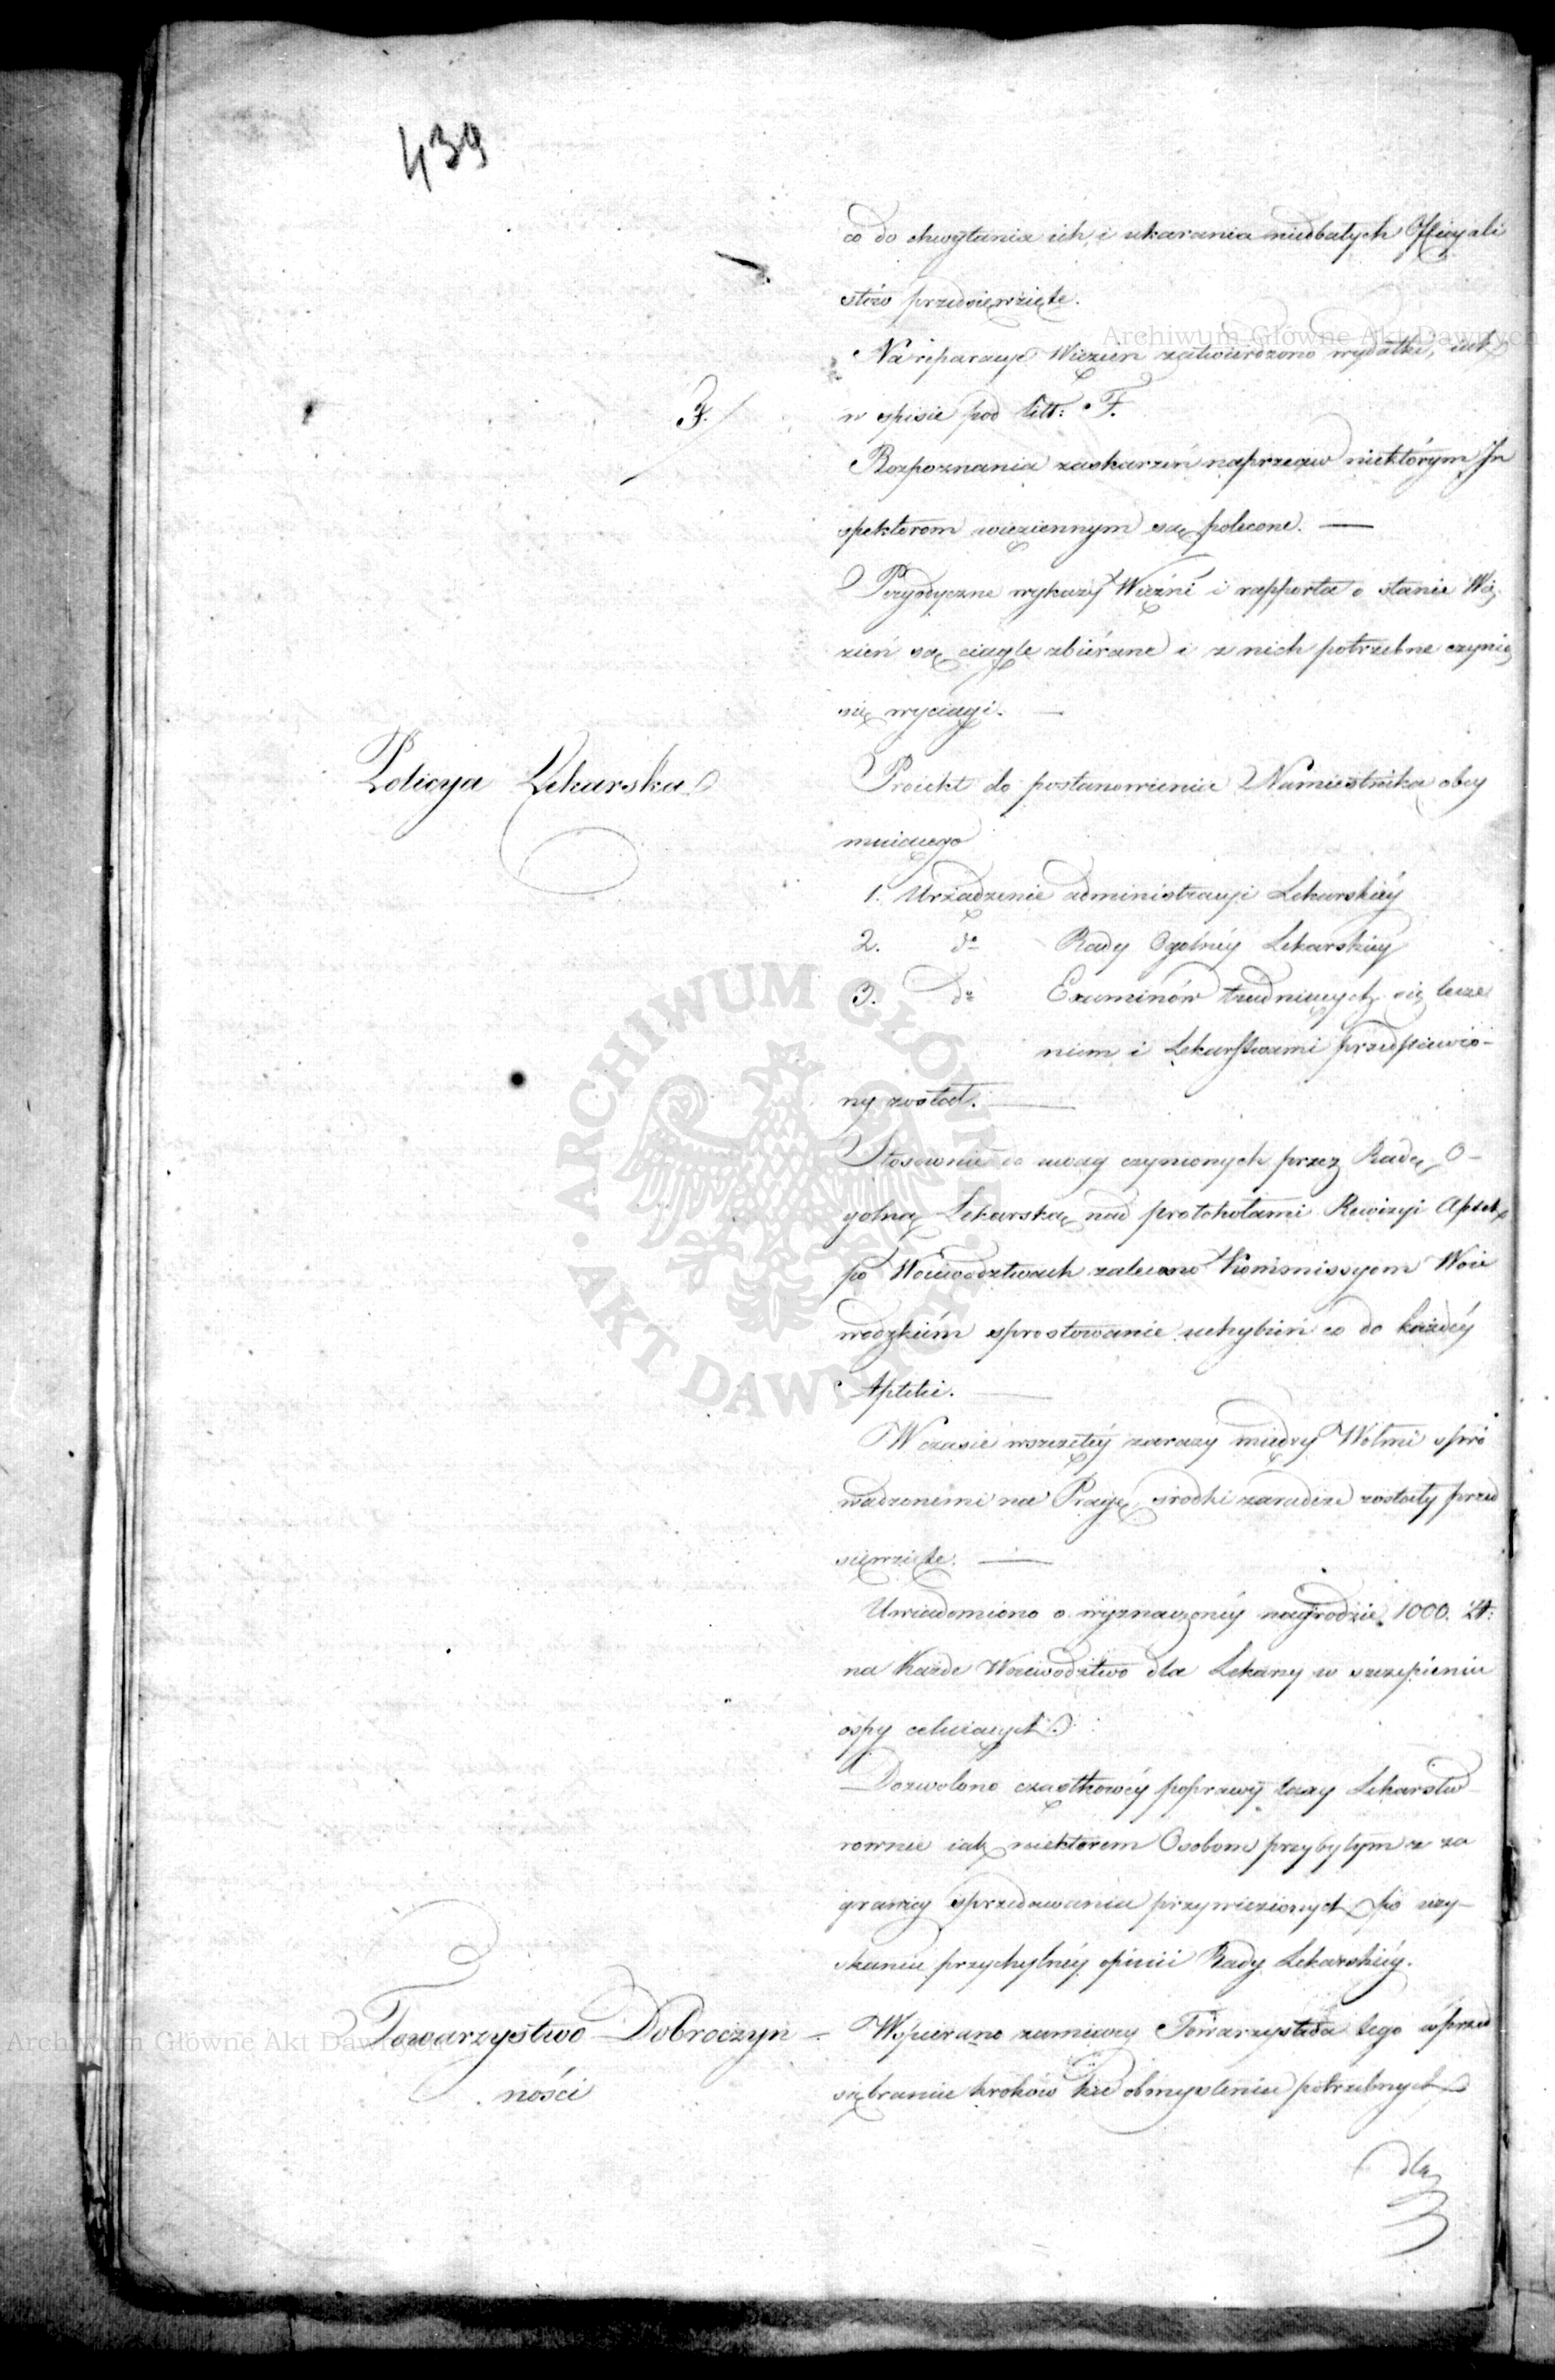 439
co do chwytania ich, i ukarania niedbałych Officyali
stów przedsięwzięte.
Na reparacye Więzien zatwierdzono wydatki, iak
F.
w spisie pod litt: F.
Rozpoznania zaskarzeń naprzeciw niektórym In
spektorom więziennym są polecone. —
Peryodyczne wykazy Więźni i rapporta o stanie Wię
zień są ciągle zbiérane i z nich potrzebne czynią
się wyciągi. —
Policya Lekarska
Proiekt do postanowienia Namiestnika obey
muiącego
1. Urządzenie administracyi Lekarskiéy
2. do Rady Ogolnéy Lekarskiéy
3. do Examinów trudniących się lecze
niem i Lekarstwami przedstawio-
ny został. —
Stosownie do uwag czynionych przez Radę O-
golną Lekarską nad protokołami Rewizyi Aptek
po Woiewodztwach zalecono Kommissyom Woie
wodzkiém sprostowanie uchybień co do każdéy
Apteki. —
W czasie wszczętéy zarazy między Wołmi spro
wadzonemi na Pragę, srodki zaradcze zostały przed
sięwzięte. —
Uwiadomiono o wyznaczonéy nagrodzie 1000. Zł:
na Każde Woiewodztwo dla Lekarzy w szczepieniu
ospy celuiących.
Dozwolono cząstkowéy poprawy taxy Lekarstw
rownie iak niektorem Osobom przybyłym z za
granicy sprzedawania przywiezionych po uzy-
skaniu przychylnéy opinii Rady Lekarskiéy.
Towarzystwo Dobroczyn-
ności
Wspierano zamiary Towarzystwa tego w przed
siębraniu kroków ku obmysleniu potrzebnych
dla
Archiwum Główne Akt Dawnych
ARCHIWUM GŁÓWNE AKT DAWNYCH
Archiwum Główne Akt Dawnych